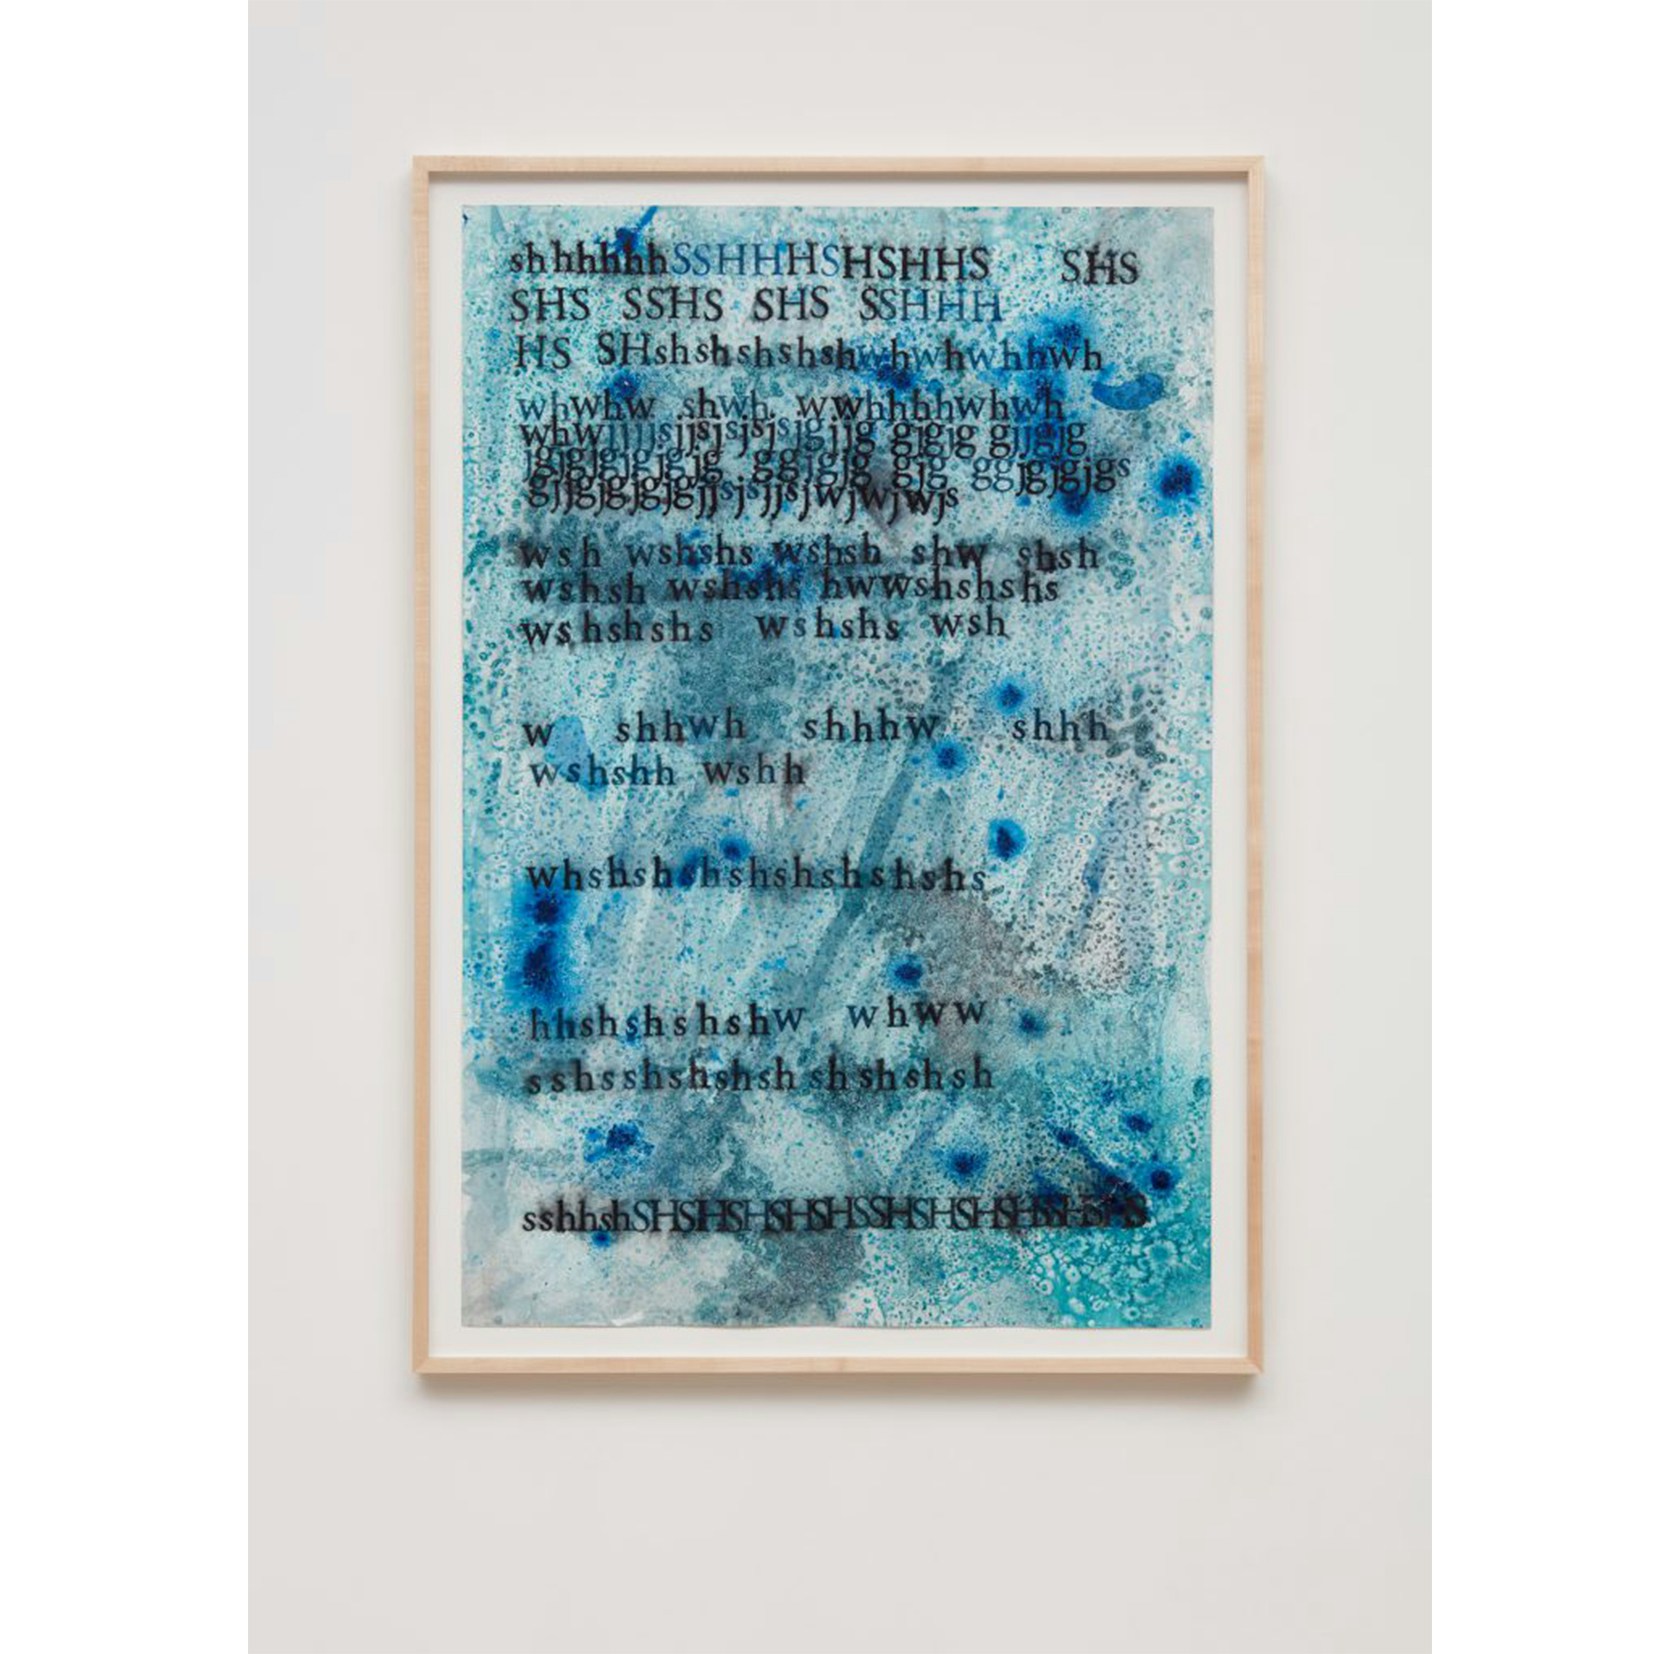 shhhhhhSSHHHSHSHHS SHS
SHS SSHS SHS SSHHH
HS SHshshshshshwhwhwhhwh
whwhw shwh wwhhhhwhwh
whwjjjjsjjsjsjsjsjgjjg gjgjg gjjgjg
jgjgjgjgjgjg ggjgjg gjg ggjgjgjgs
gjjgjgjgjgjjsjsjjsjwjwjwjs
wsh wshshs wshsh shw shsh
wshsh wshshs hwwshshshs
wshshshs wshshs wsh
w shhwh shhhw shhh
wshshh wshh
whshshshshshshshshs
hhshshshshw whww
sshsshshshshshshshsh